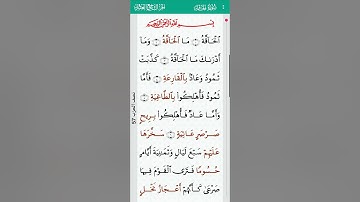 بِسْمِ ٱللَّهِ ٱلرَّحْمَٰنِ ٱلرَّحِيمِ
ٱلْحَآقَّةُ ۝ مَا ٱلْحَآقَّةُ ۝ وَمَآ
أَدْرَىٰكَ مَا ٱلْحَآقَّةُ ۝ كَذَّبَتْ
ثَمُودُ وَعَادٌۢ بِٱلْقَارِعَةِ ۝ فَأَمَّا
ثَمُودُ فَأُهْلِكُوا۟ بِٱلطَّاغِيَةِ ۝
وَأَمَّا عَادٌ فَأُهْلِكُوا۟ بِرِيحٍ
صَرْصَرٍ عَاتِيَةٍ ۝ سَخَّرَهَا
عَلَيْهِمْ سَبْعَ لَيَالٍ وَثَمَٰنِيَةَ أَيَّامٍ
حُسُومًا فَتَرَى ٱلْقَوْمَ فِيهَا
صَرْعَىٰ كَأَنَّهُمْ أَعْجَازُ نَخْلٍ